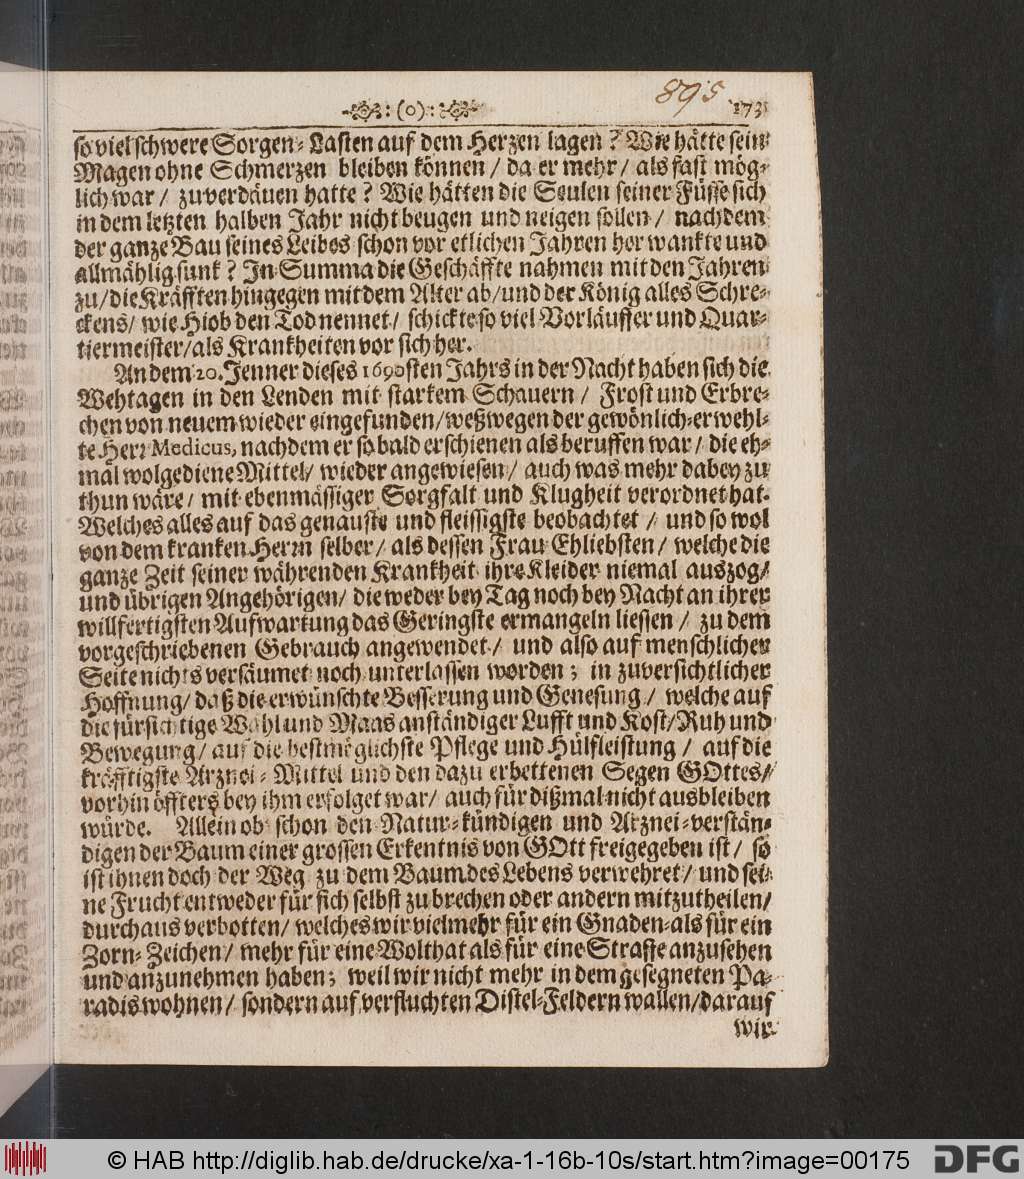 :(o):
895
173
so viel schwere Sorgen-Lasten auf dem Herzen lagen? Wie hätte sein
Magen ohne Schmerzen bleiben können / da er mehr / als fast mög-
lich war / zu verdäuen hatte? Wie hätten die Seulen seiner Füsse sich
in dem letzten halben Jahr nicht beugen und neigen sollen / nachdem
der ganze Bau seines Leibes schon vor etlichen Jahren her wankte und
allmählig sunk? In Summa die Geschäffte nahmen mit den Jahren
zu / die Kräfften hingegen mit dem Alter ab / und der König alles Schre-
ckens / wie Hiob den Tod nennet / schickte so viel Vorläuffer und Quar-
tiermeister / als Krankheiten vor sich her.
An dem 20. Jenner dieses 1690sten Jahrs in der Nacht haben sich die
Wehtagen in den Lenden mit starkem Schauern / Frost und Erbre-
chen von neuem wieder eingefunden / weßwegen der gewönlich-erwehl-
te Herr Medicus, nachdem er so bald erschienen als beruffen war / die eh-
mal wolgediene Mittel / wieder angewiesen / auch was mehr dabey zu
thun wäre / mit ebenmässiger Sorgfalt und Klugheit verordnet hat.
Welches alles auf das genauste und fleissigste beobachtet / und so wol
von dem kranken Herrn selber / als dessen Frau Ehliebsten / welche die
ganze Zeit seiner währenden Krankheit ihre Kleider niemal auszog /
und übrigen Angehörigen / die weder bey Tag noch bey Nacht an ihrer
willfertigsten Aufwartung das Geringste ermangeln liessen / zu dem
vorgeschriebenen Gebrauch angewendet / und also auf menschlicher
Seite nichts versäumet noch unterlassen worden; in zuversichtlicher
Hoffnung / daß die erwünschte Besserung und Genesung / welche auf
die fürsichtige Wahl und Maas anständiger Lufft und Kost / Ruh und
Bewegung / auf die bestmöglichste Pflege und Hülfleistung / auf die
kräfftigste Arznei-Mittel und den dazu erbettenen Segen GOttes /
vorhin öffters bey ihm erfolget war / auch für dißmal nicht ausbleiben
würde. Allein ob schon den Natur-kündigen und Arznei-verstän-
digen der Baum einer grossen Erkentnis von GOtt freigegeben ist / so
ist ihnen doch der Weg zu dem Baum des Lebens verwehret / und sei-
ne Frucht entweder für sich selbst zu brechen oder andern mitzutheilen /
durchaus verbotten / welches wir vielmehr für ein Gnaden-als für ein
Zorn-Zeichen / mehr für eine Wolthat als für eine Straffe anzusehen
und anzunehmen haben; weil wir nicht mehr in dem gesegneten Pa-
radis wohnen / sondern auf verfluchten Distel-Feldern wallen / darauf
wir
© HAB http://diglib.hab.de/drucke/xa-1-16b-10s/start.htm?image=00175
DFG